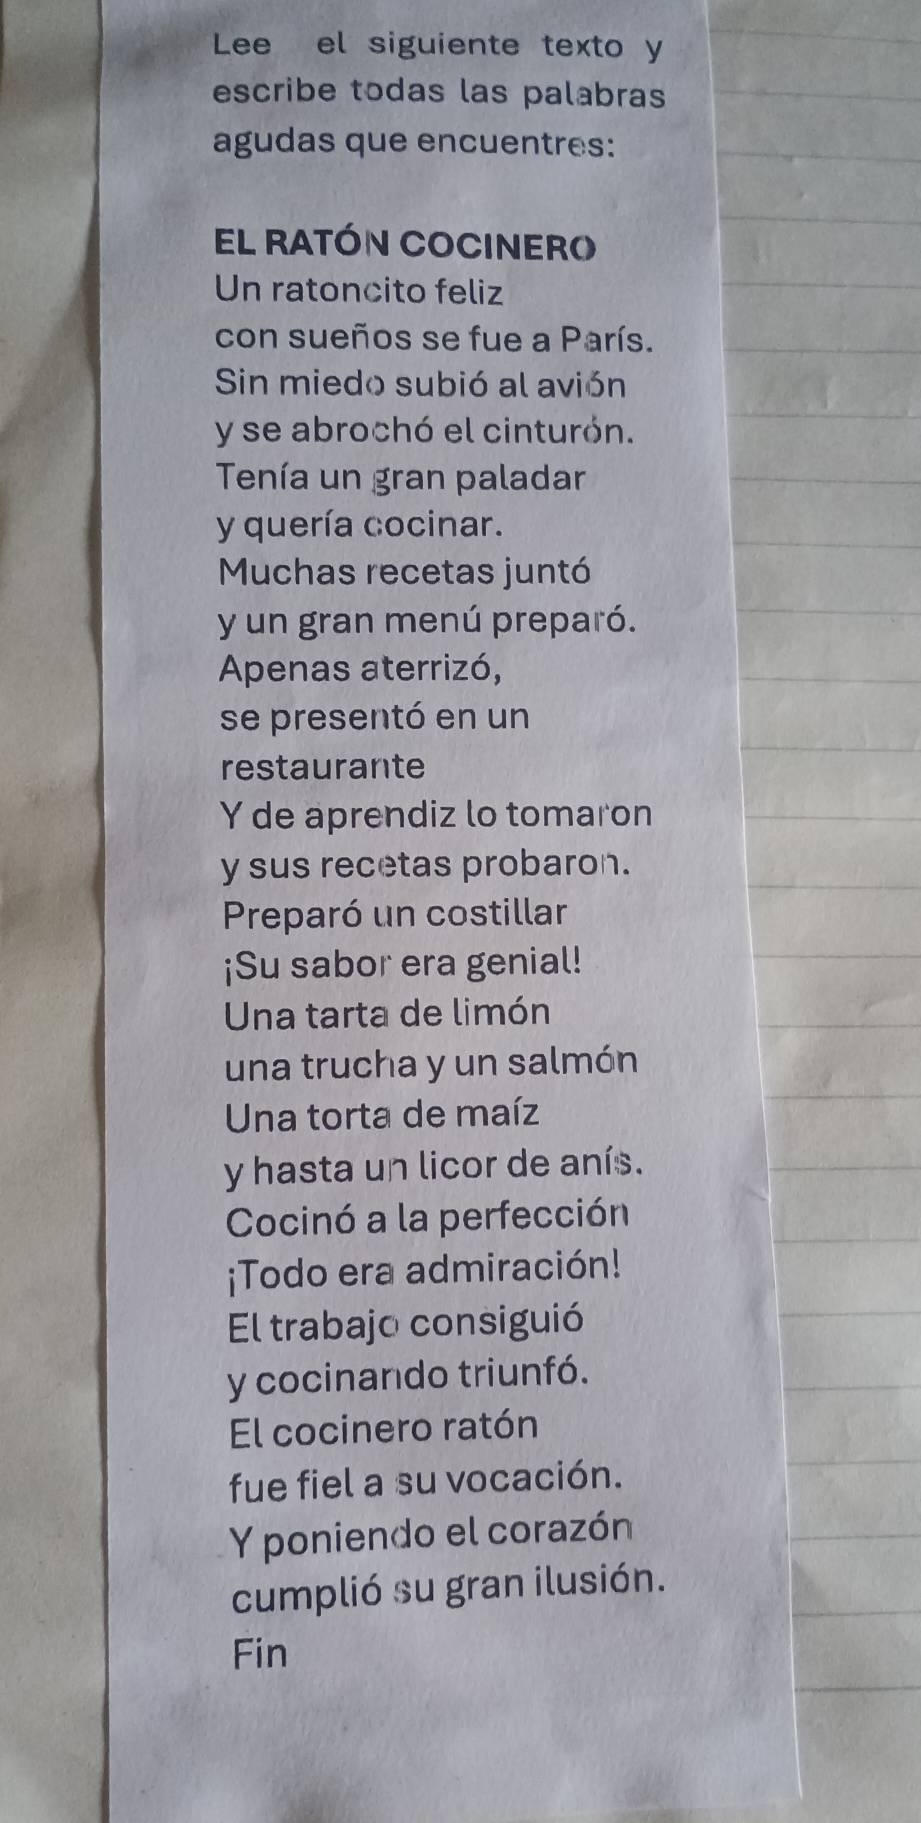 Lee el siguiente texto y
escribe todas las palabras
agudas que encuentres:
EL RATÓN COCINERO
Un ratoncito feliz
con sueños se fue a París.
Sin miedo subió al avión
y se abrochó el cinturón.
Tenía un gran paladar
y quería cocinar.
Muchas recetas juntó
y un gran menú preparó.
Apenas aterrizó,
se presentó en un
restaurante
Y de aprendiz lo tomaron
y sus recetas probaron.
Preparó un costillar
¡Su sabor era genial!
Una tarta de limón
una trucha y un salmón
Una torta de maíz
y hasta un licor de anís.
Cocinó a la perfección
¡Todo era admiración!
El trabajo consiguió
y cocinando triunfó.
El cocinero ratón
fue fiel a su vocación.
Y poniendo el corazón
cumplió su gran ilusión.
Fin